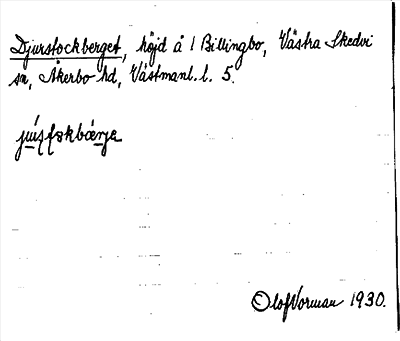 Djurstockberget, höjd å 1 Billingbo, Västra Skedvi
sn, Åkerbo hd, Västmanl. l. 5.
Olof Norman 1930.